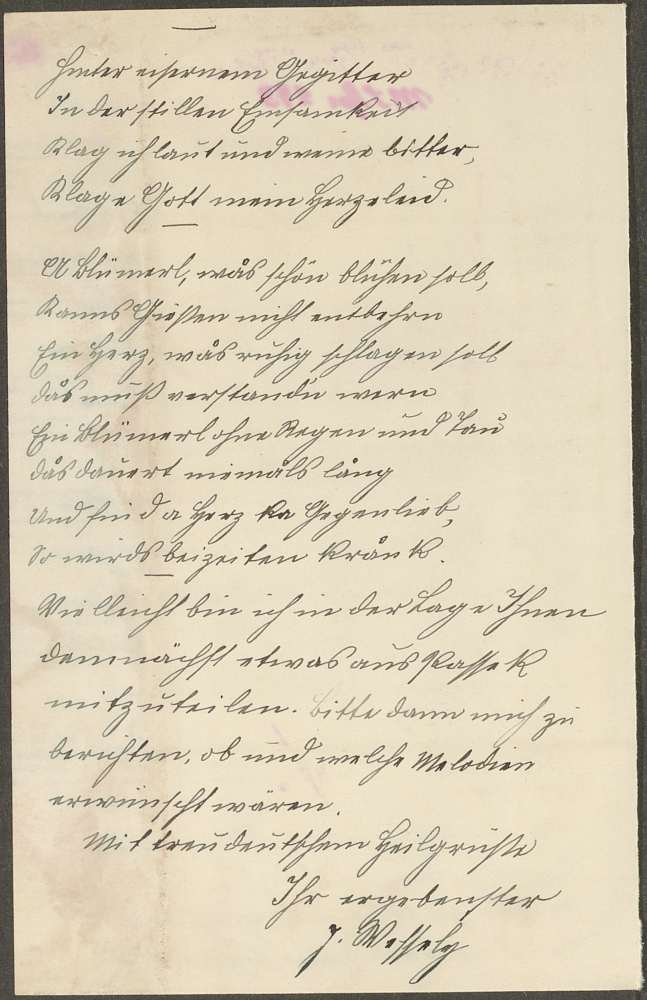 Hinter eisernem Gegitter
In der stillen Einsamkeit
Klag ich laut und weine bitter,
Klage Gott mein Herzeleid.
A Blümerl, wås schön blühen soll,
Kanns Gießen nicht entbehrn
Ein Herz, wås ruhig schlagen soll
dås muß verstandn wern
Ein Blümerl ohne Regen und Tau
dås dauert niemåls lång
Und find a Herz ka Gegenlieb,
So wirds beizeiten krånk.
Vielleicht bin ich in der Lage Ihnen
demnächst etwas aus Passek
mitzuteilen. Bitte dann mich zu
berichten, ob und welche Melodien
erwünscht wären.
Mit treudeutschem Heilgruße
Ihr ergebenster
J. Wessely